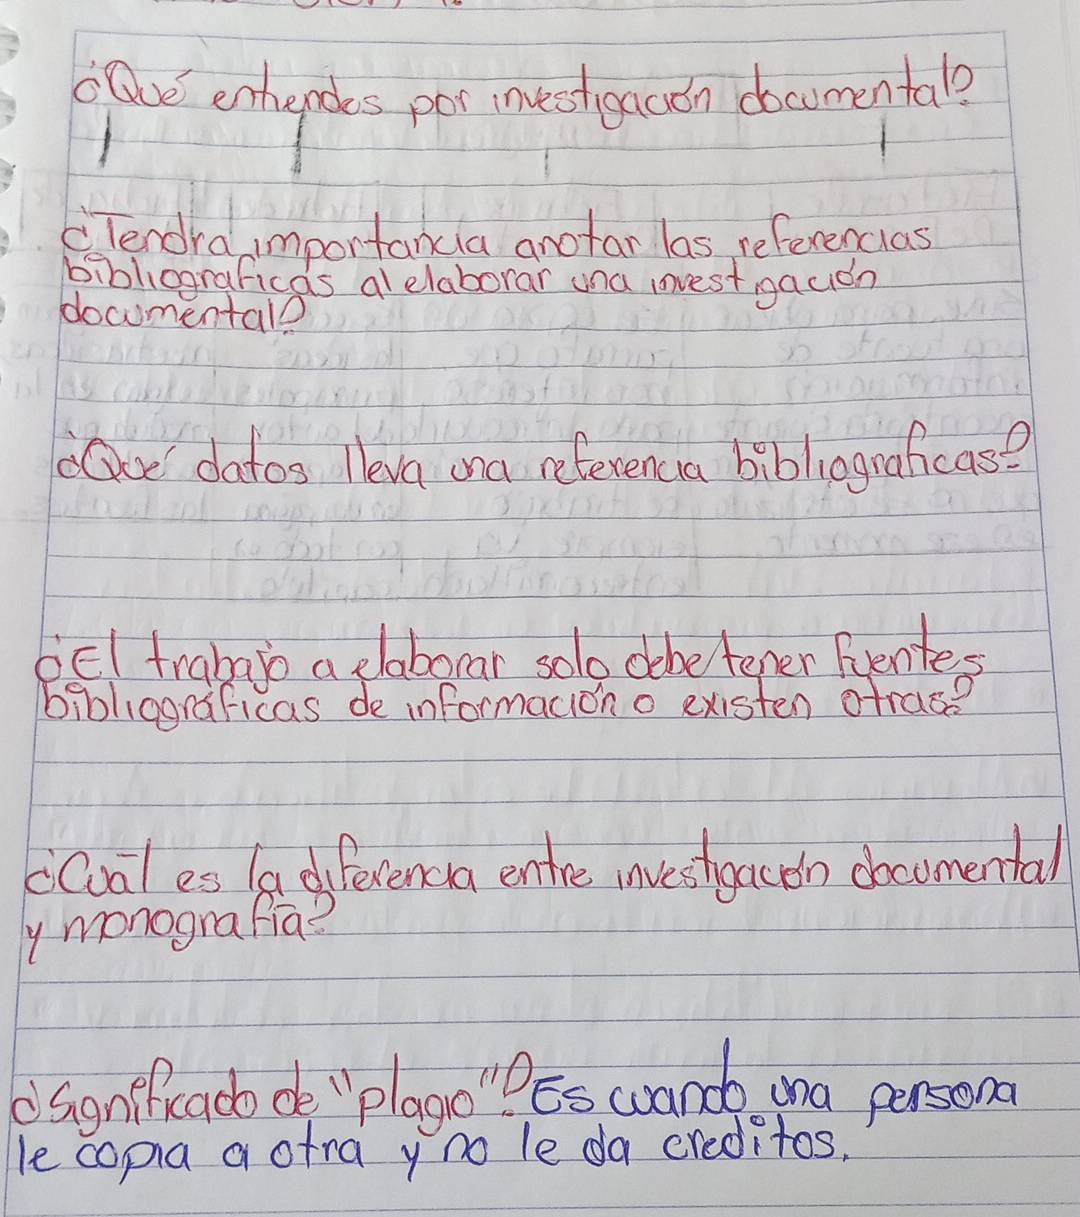 ¿Qué entiendes por investigación documental?
¿Tendra importancia anotar las referencias
bibliograficas al elaborar una investgación
documental?
¿Qué datos lleva una referencia bibliograficas?
¿El trabajo a elaborar solo debe tener fuentes
bibliográficas de información o existen otras?
¿Cuál es la diferencia entre investigación documental
y monografía?
¿Significado de "plagio"? Es cuando una persona
le copia a otra y no le da creditos.